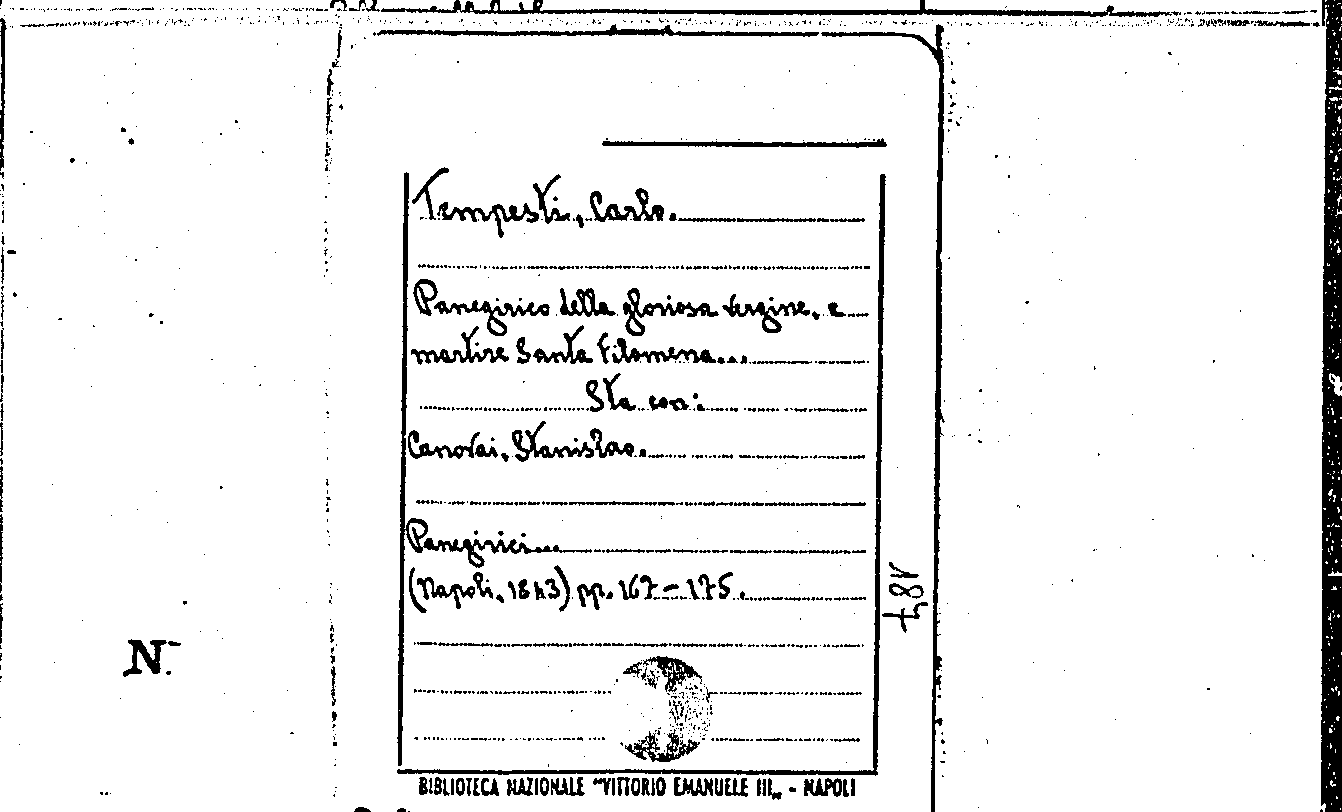 Tempesti, Carlo.
Panegirico della gloriosa vergine, e
martire Santa Filomena...
Sta con:
Canovai, Stanislao.
Panegirici...
(Napoli, 1843) pp. 167-175.
187
N.
BIBLIOTECA NAZIONALE "VITTORIO EMANUELE III„ - NAPOLI